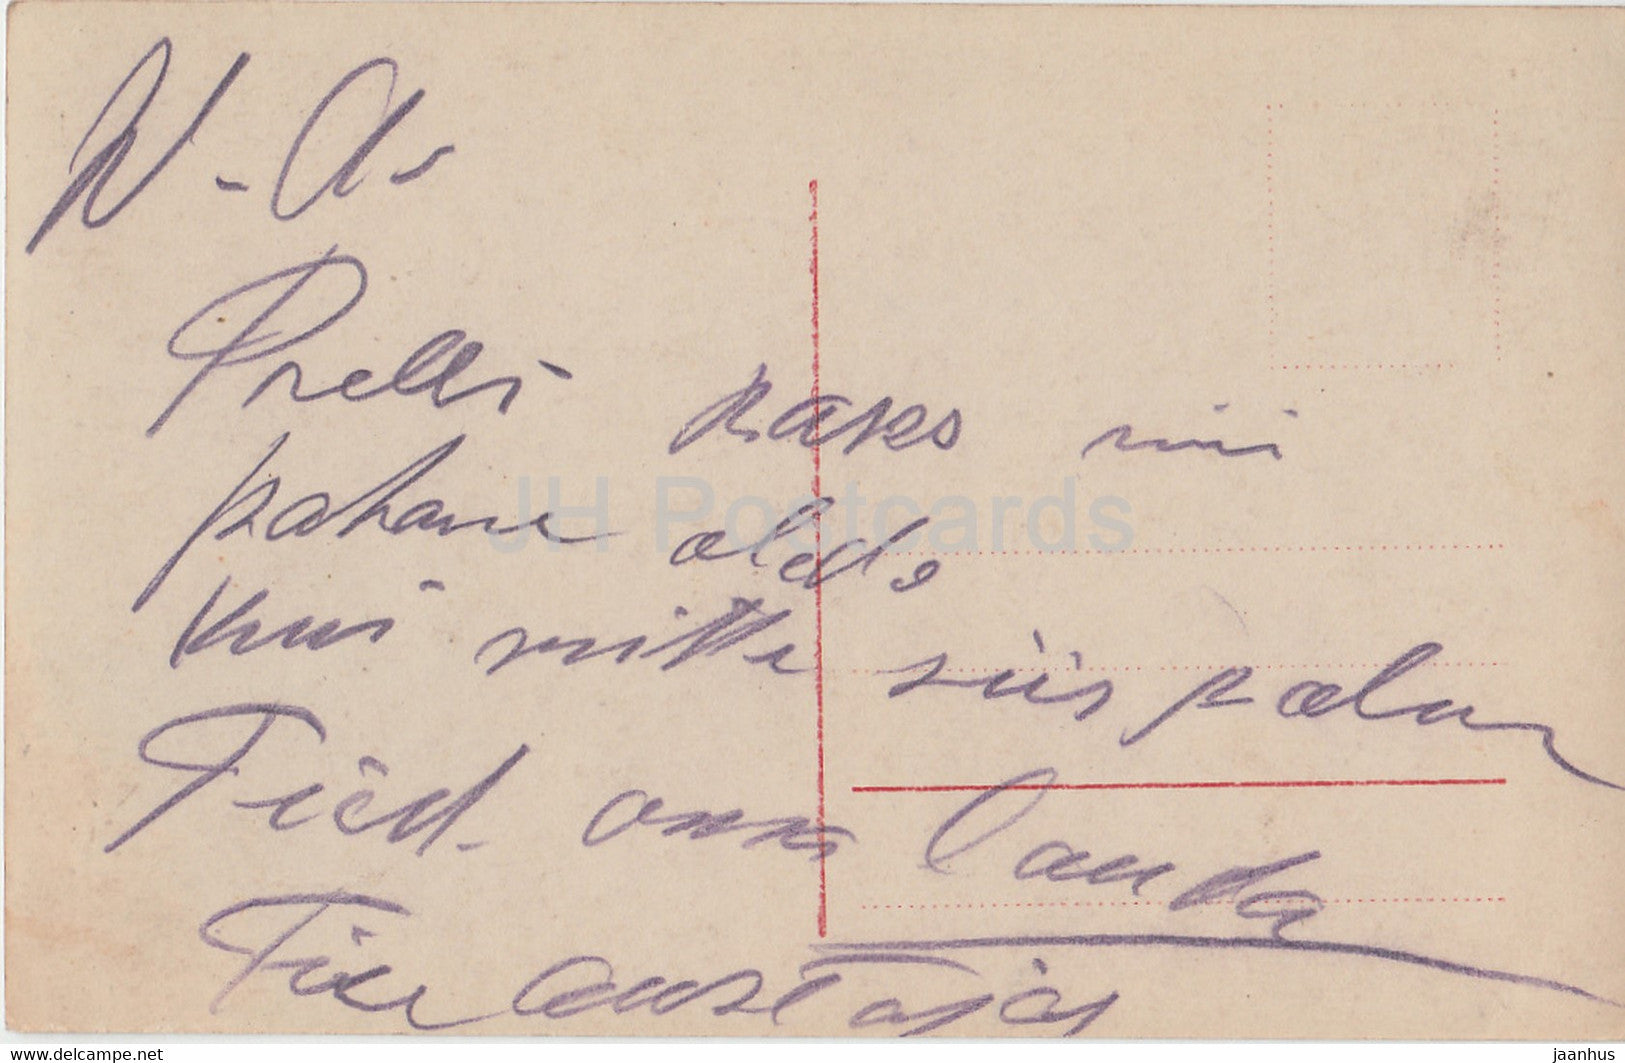 N-A-
Prelli kaks nii
pahane oleds
kui mitte siis palun
Tied. onni lauda
Tie austajas
JH Postcards
www.delcampe.net
jaanhus